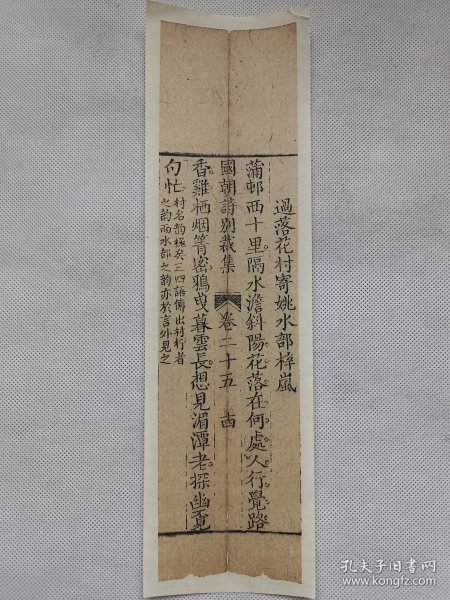 過落花村寄姚水部梓嵐
蒲邨西十里隔水澹斜陽花落在何處人行覺路
國朝詩別裁集 卷二十五 古
香雞栖烟箐密鴉曳暮雲長想見湄潭老探幽覓
句忙 村名韵極矣三四語傳出村行者
之韵而水部之韵亦於言外見之
孔夫子旧书网
www.kongfz.com